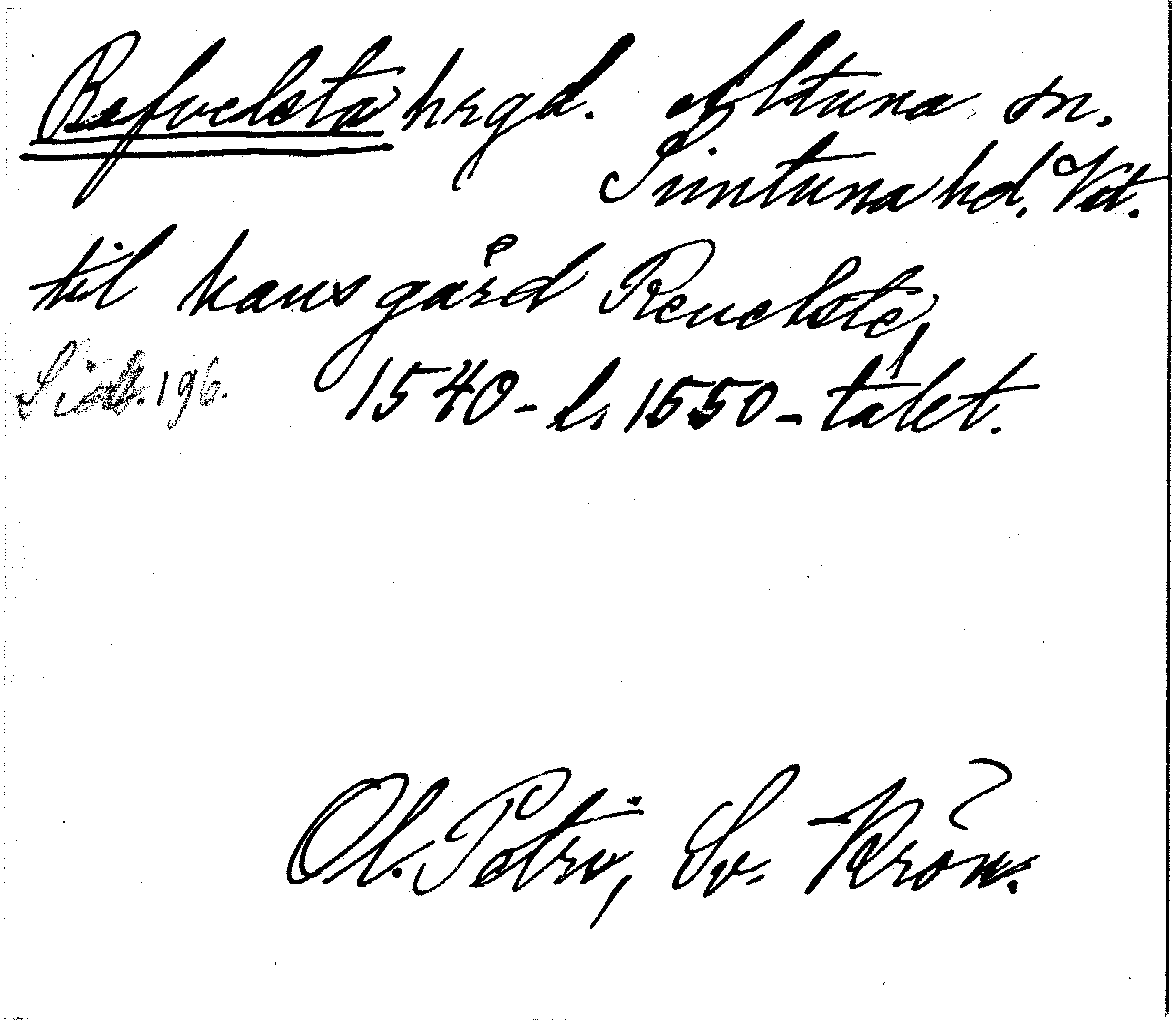 Refvelsta hrgd. Altuna sn.
Simtuna hd. Vstm.
til hans gård Reuelste,
Sidt. 196. 1540- l. 1550-talet.
Ol. Petri, Sv. Krön.